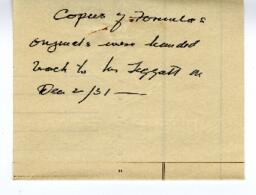 Copies of Formulas
originals were handed
back to Mr Leggatt on
Dec 2/31 —